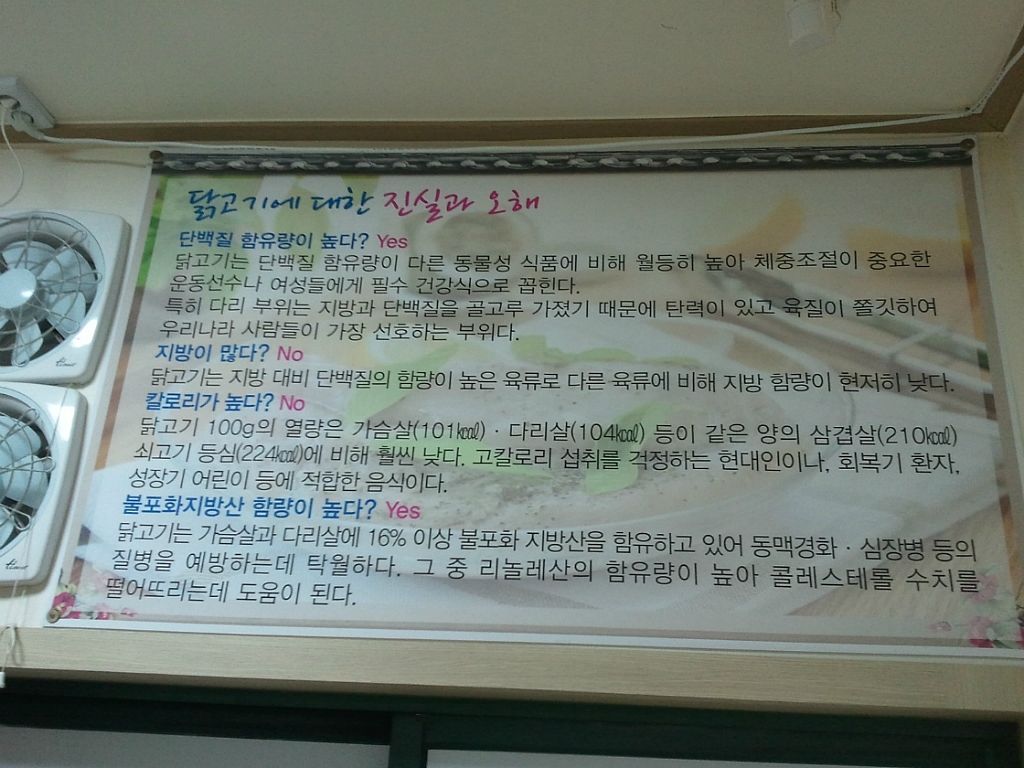 닭고기에 대한 진실과 오해
단백질 함유량이 높다? Yes
닭고기는 단백질 함유량이 다른 동물성 식품에 비해 월등히 높아 체중조절이 중요한
운동선수나 여성들에게 필수 건강식으로 꼽힌다.
특히 다리 부위는 지방과 단백질을 골고루 가졌기 때문에 탄력이 있고 육질이 쫄깃하여
우리나라 사람들이 가장 선호하는 부위다.
지방이 많다? No
닭고기는 지방 대비 단백질의 함량이 높은 육류로 다른 육류에 비해 지방 함량이 현저히 낮다.
칼로리가 높다? No
닭고기 100g의 열량은 가슴살(101㎉) · 다리살(104㎉) 등이 같은 양의 삼겹살(210㎉)
쇠고기 등심(224㎉)에 비해 훨씬 낮다. 고칼로리 섭취를 걱정하는 현대인이나, 회복기 환자,
성장기 어린이 등에 적합한 음식이다.
불포화지방산 함량이 높다? Yes
닭고기는 가슴살과 다리살에 16% 이상 불포화 지방산을 함유하고 있어 동맥경화 · 심장병 등의
질병을 예방하는데 탁월하다. 그 중 리놀레산의 함유량이 높아 콜레스테롤 수치를
떨어뜨리는데 도움이 된다.